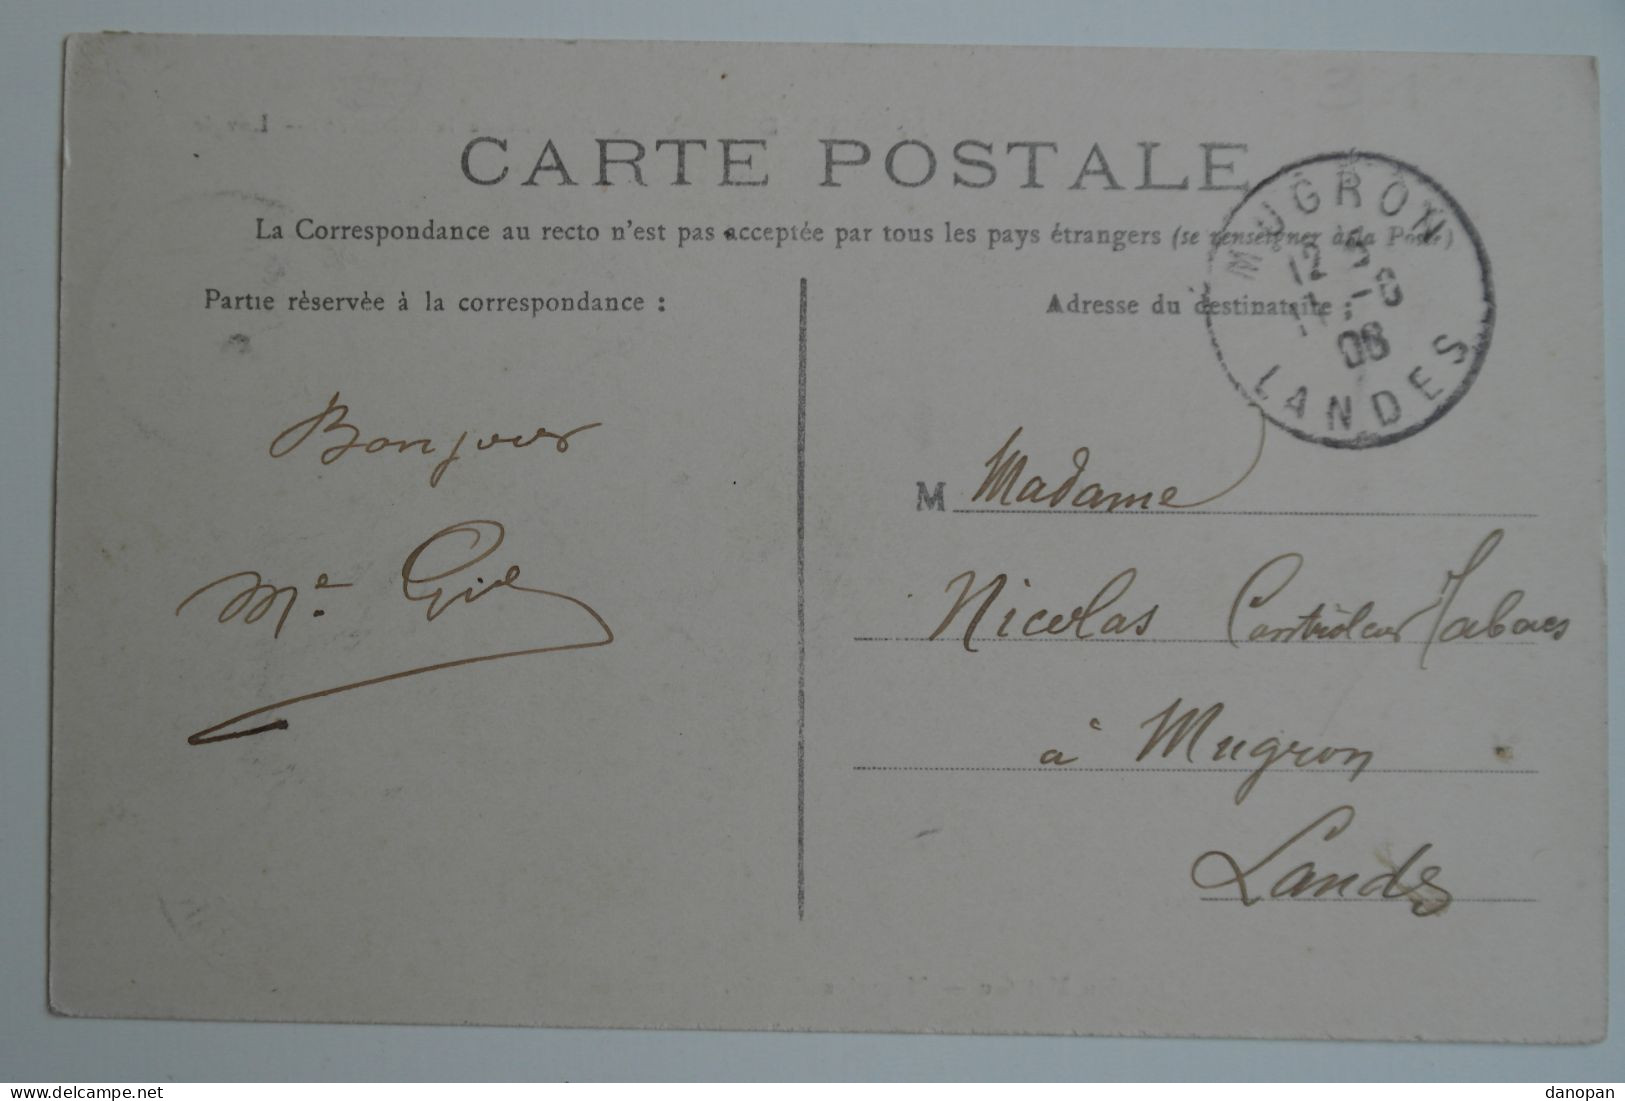 CARTE POSTALE
La Correspondance au recto n'est pas acceptée par tous les pays étrangers (se renseigner à la Poste)
Partie réservée à la correspondance :
Adresse du destinataire
MUGRON
12
08
LANDES
Bonjour
M Madame
Nicolas Contrôleur Tabacs
à Mugron
Landes
delcampe.net
danopan